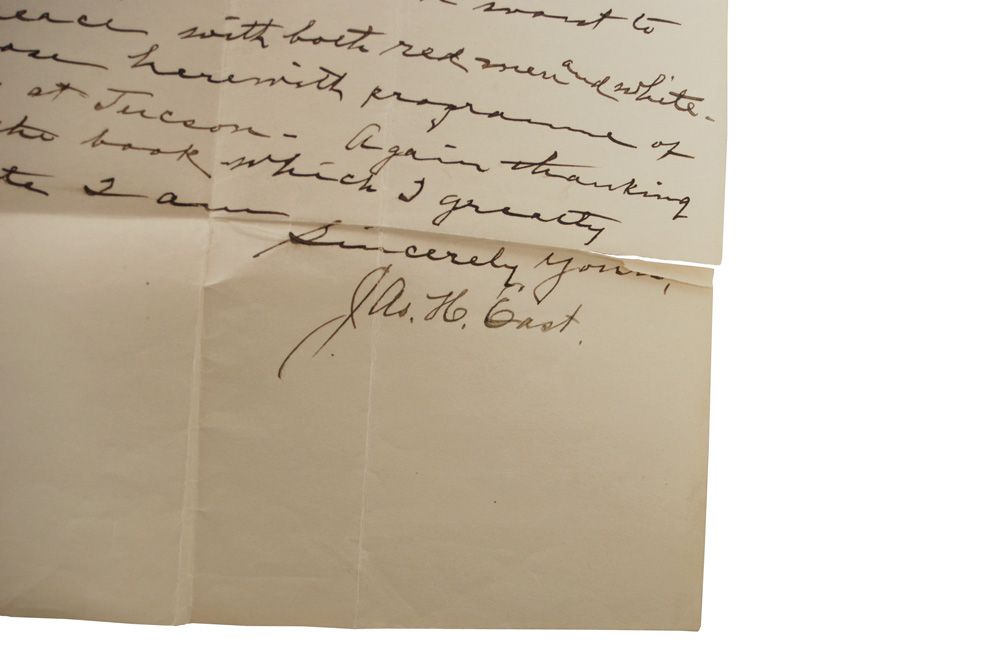 want to
eace with both red men and white-
ose herewith programme of
at Tucson - Again thanking
the book which I greatly
te I am
Sincerely Yours,
Jas. H. East.